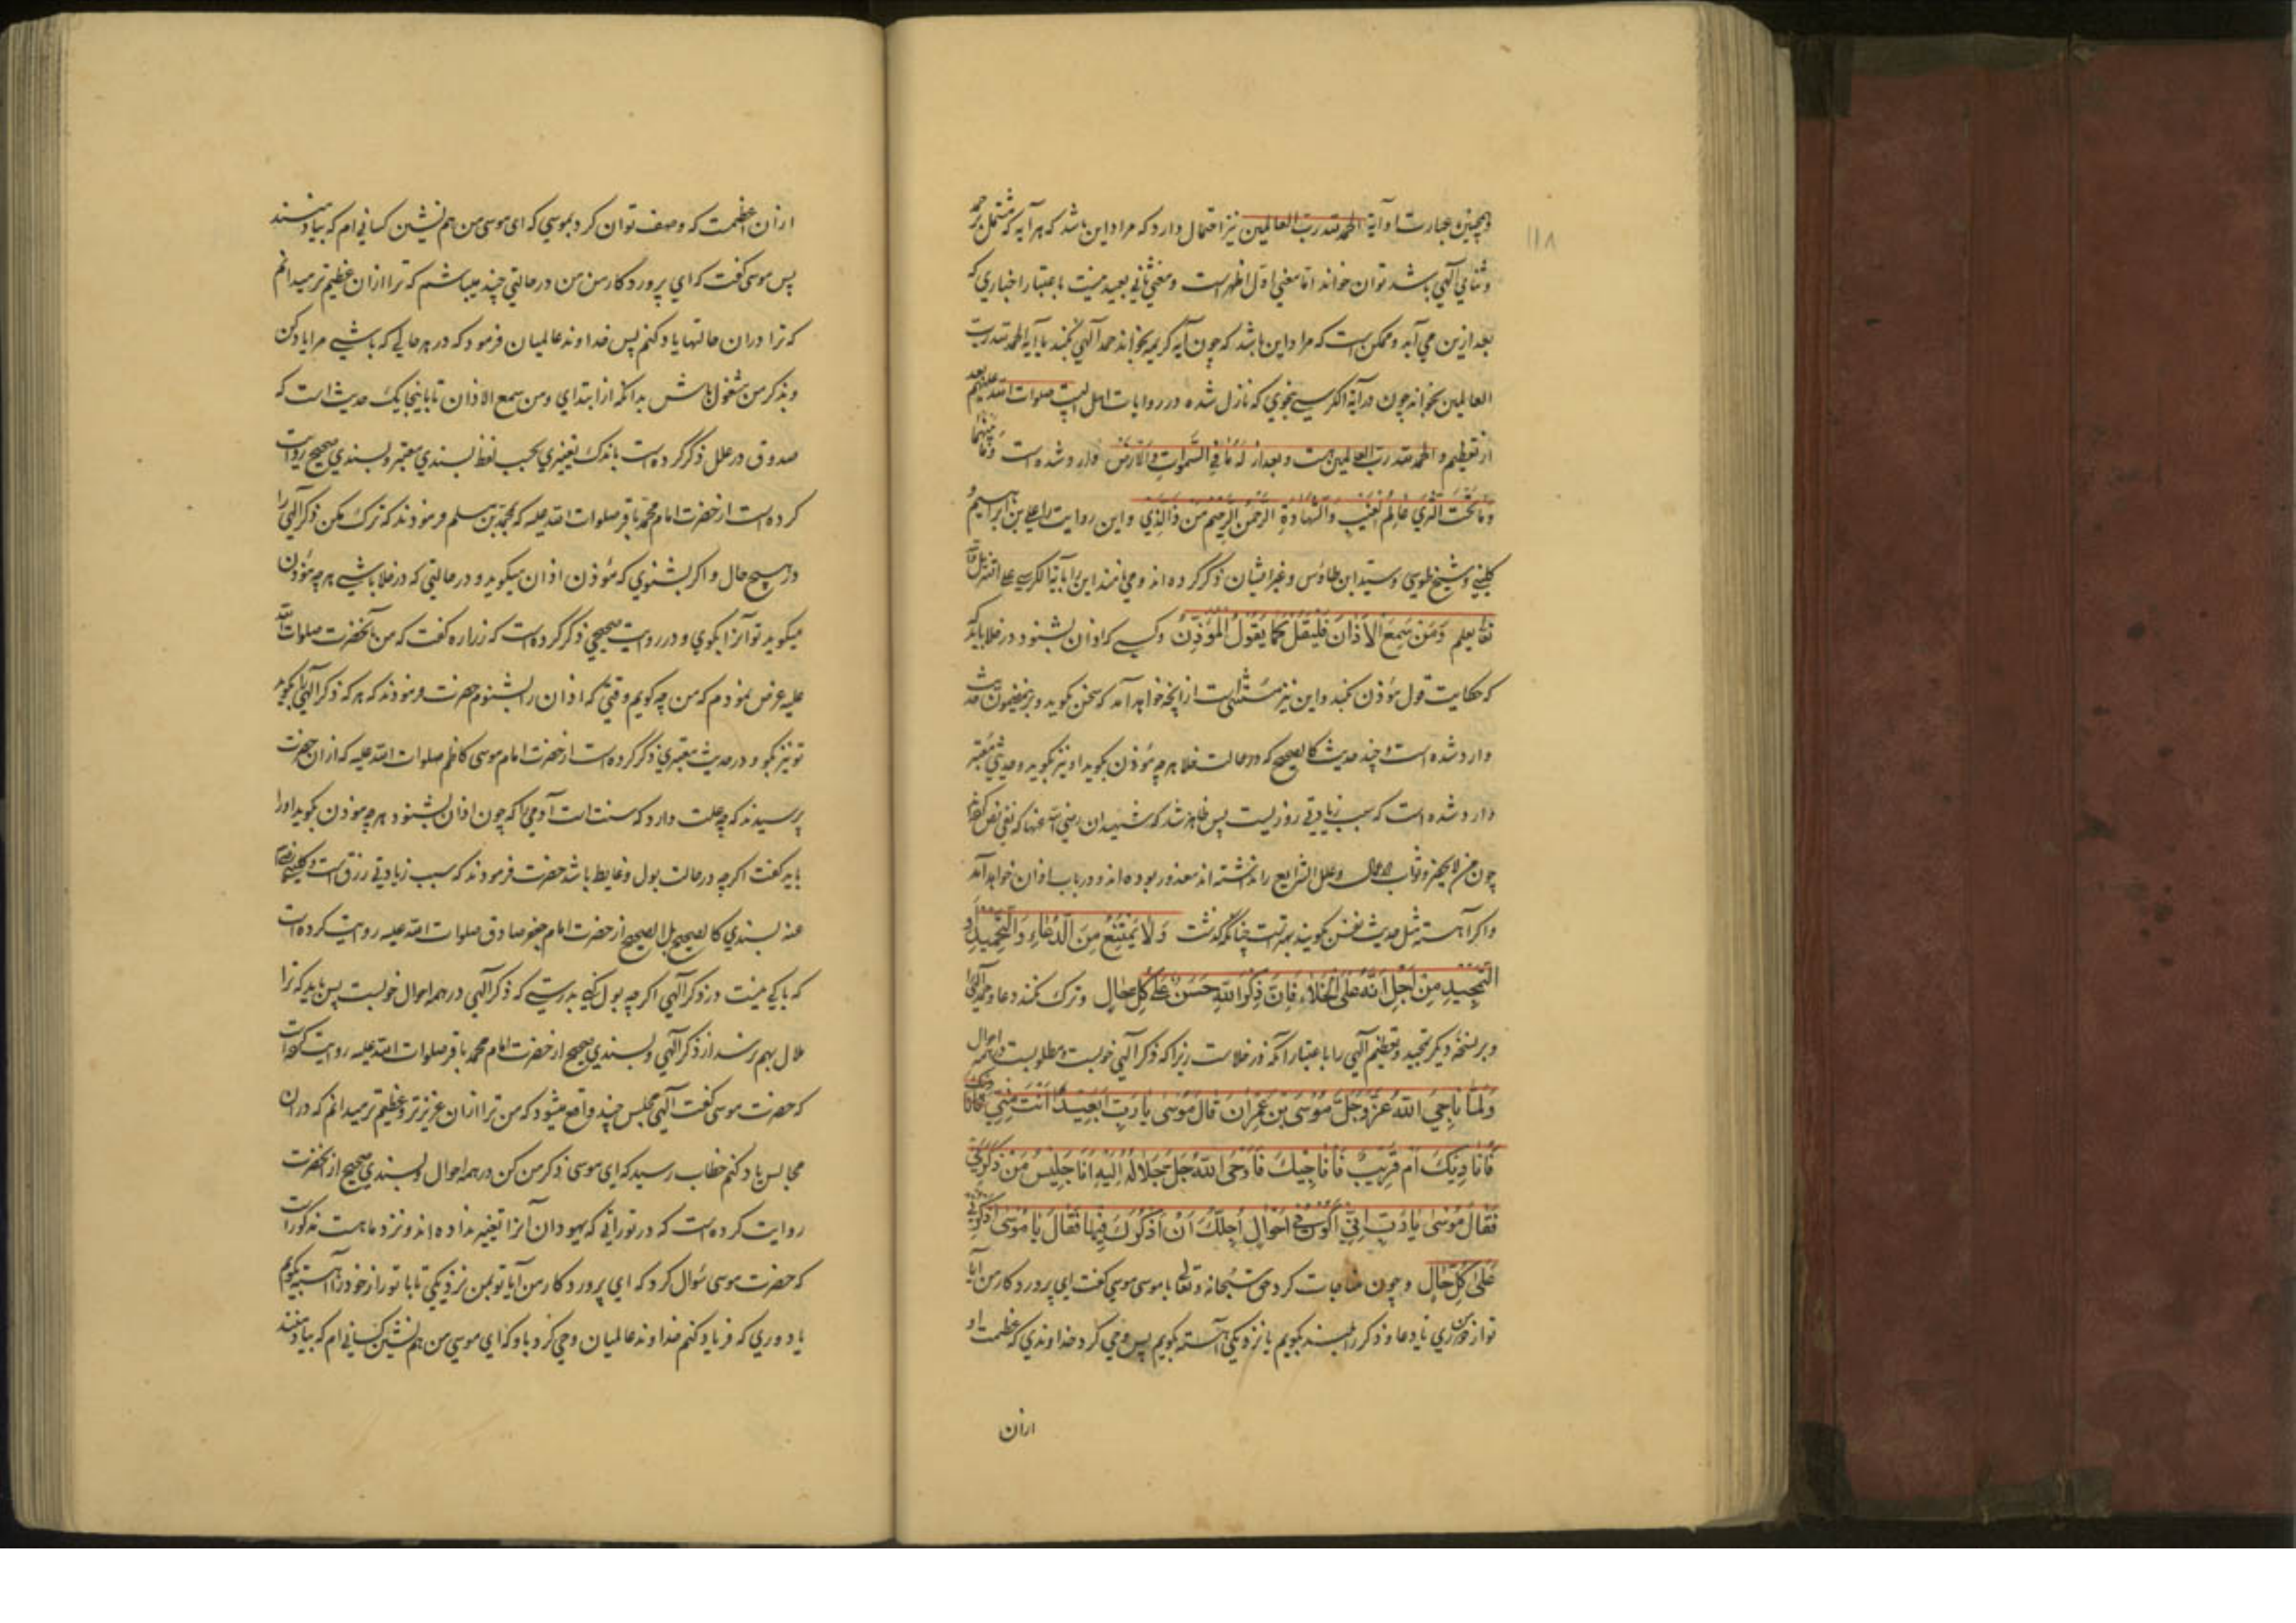 ۱۱۸
وهمچنین عبارت او آیة الحمد لله رب العالمین نیز احتمال دارد که مراد این باشد که هر آیه که مشتمل بر حمد
و ثنای آلهی باشد توان خواند اما معنی اول اظهر است و معنی ثانی بعید نیست باعتبار اخباری که
بعد ازین می آید و ممکن است که مراد این باشد که چون آیه کریمه بخواند حمد آلهی بکند با آیة الحمد لله رب
العالمین بخواند چون در آیة الکرسی بنحوی که نازل شده در روایات اهل البیت صلوات الله علیهم بعد
از تعظیم و الحمد لله رب العالمین است و بعد از له ما فی السموات والارض وارد شده است وما بینهما
وما تحت الثری عالم الغیب والشهادة الرحمن الرحیم من ذا الذی و این روایت را علی بن ابراهیم و
کلینی و شیخ طوسی و سید ابن طاوس و غیر ایشان ذکر کرده اند و می نامند این را بآیة الکرسی علی التنزیل والله
تعالی یعلم وَمَن سَمِعَ الاَذانَ فَلیَقُل کَما یَقُولُ المُؤَذِّنُ و کسی که اذان بشنود در خلا باید که
که حکایت قول مؤذن کند و این نیز مستثنی است از آنچه خواهد آمد که سخن نگوید و بر این مضمون حدیث
وارد شده است و چند حدیث کالصحیح که در حالت خلا هر چه مؤذن بگوید او نیز بگوید و حدیثی معتبر
وارد شده است که سبب زیادتی روزیست پس ظاهر شد که شهیدان رضی الله عنهما که نفی نص کرده اند
چون من لایحضر و ثواب الاعمال و علل الشرایع را نداشته اند معذور بوده اند و در باب اذان خواهد آمد
و اکر آهسته مثل حدیث نفس بگویند بهتر است چنانکه گذشت وَلا یَمتَنِع مِنَ الدُّعاءِ وَالتَّحمیدِ و
التَّمجیدِ مِن اَجلِ اَنَّهُ عَلَی الخَلاءِ فَاِنَّ ذِکرَ اللهِ حَسَنٌ عَلی کُلِّ حالٍ و ترک نکند دعا و حمد آلهی را
و بر نسخه دیکر تمجید و تعظیم آلهی را باعتبار آنکه در خلاست زیرا که ذکر آلهی خوبست و مطلوبست در همه احوال
وَلَمّا ناجَی اللهَ عَزَّوَجَلَّ مُوسَی بنُ عِمرانَ قالَ مُوسی یا رَبِّ اَبَعِیدٌ اَنتَ مِنّی
فَاُنادِیکَ اَم قَرِیبٌ فَاُناجِیکَ فَاَوحَی اللهُ جَلَّ جَلالُهُ اِلَیهِ اَنَا جَلِیسُ مَن ذَکَرَنی
فَقالَ مُوسی یا رَبِّ اِنّی اَکُونُ فی اَحوالٍ اُجِلُّکَ اَن اَذکُرَکَ فِیها فَقالَ یا مُوسی اذکُرنی
عَلی کُلِّ حالٍ و چون مناجات کرد حق سبحانه و تعالی با موسی موسی کفت ای پروردکار من آیا
تو از من دوری تا دعا و ذکر را بلند بگویم یا نزدیکی آهسته بگویم پس وحی کرد خداوندی که عظمت او
ازان
ازان عظیمست که وصف توان کرد بموسی که ای موسی من هم نشین کسانی ام که بیاد منند
پس موسی کفت که ای پروردکار من من در حالتی چند میباشم که ترا ازان عظیم تر میدانم
که ترا دران حالتها یاد کنم پس خداوند عالمیان فرمود که در هر حالی که باشی مرا یاد کن
و بذکر من مشغول باش بدانکه از ابتدای ومن سمع الاذان تا باینجا یک حدیث است که
صدوق در علل ذکر کرده است باندک تغییری بحسب لفظ بسندی معتبر و بسندی صحیح روایت
کرده است از حضرت امام محمد باقر صلوات الله علیه که محمد بن مسلم فرمودند که ترک مکن ذکر آلهی را
در هیچ حال و اکر بشنوی که مؤذن اذان میگوید و در حالتی که در خلا باشی هر چه مؤذن
میگوید تو آنرا بگوی و در روایت صحیحی ذکر کرده است که زراره کفت که من بآنحضرت صلوات الله
علیه عرض نمودم که من چه گویم وقتی که اذان را بشنوم حضرت فرمودند که هر که ذکر آلهی را بگوید
تو نیز بگو و در حدیث معتبری ذکر کرده است از حضرت امام موسی کاظم صلوات الله علیه که ازان حضرت
پرسیدند که چه علت دارد که سنت است آدمی را که چون اذان بشنود هر چه مؤذن بگوید او را
باید گفت اکر چه در حالت بول و غایط باشد حضرت فرمودند که سبب زیادتی رزق است و کلینی رضی الله
عنه بسندی کالصحیح بل الصحیح از حضرت امام جعفر صادق صلوات الله علیه روایت کرده است
که باکی نیست در ذکر آلهی اکر چه بول کنی بدرستی که ذکر آلهی در همه احوال خوبست پس باید که ترا
ملال بهم نرسد از ذکر آلهی و بسندی صحیح از حضرت امام محمد باقر صلوات الله علیه روایت کرده است
که حضرت موسی کفت آلهی مجلس چند واقع میشود که من ترا ازان عزیزتر و عظیم تر میدانم که دران
مجالس یاد کنم خطاب رسید که ای موسی ذکر من کن در همه احوال و بسندی صحیح از آنحضرت
روایت کرده است که در توراتی که یهودان آنرا تغییر نداده اند و نزد ماست مذکور است
که حضرت موسی سؤال کرد که ای پروردکار من آیا تو بمن نزدیکی تا با تو راز خود را آهسته بگویم
یا دوری که فریاد کنم خداوند عالمیان وحی کرد باو که ای موسی من هم نشین کسانی ام که بیاد منند